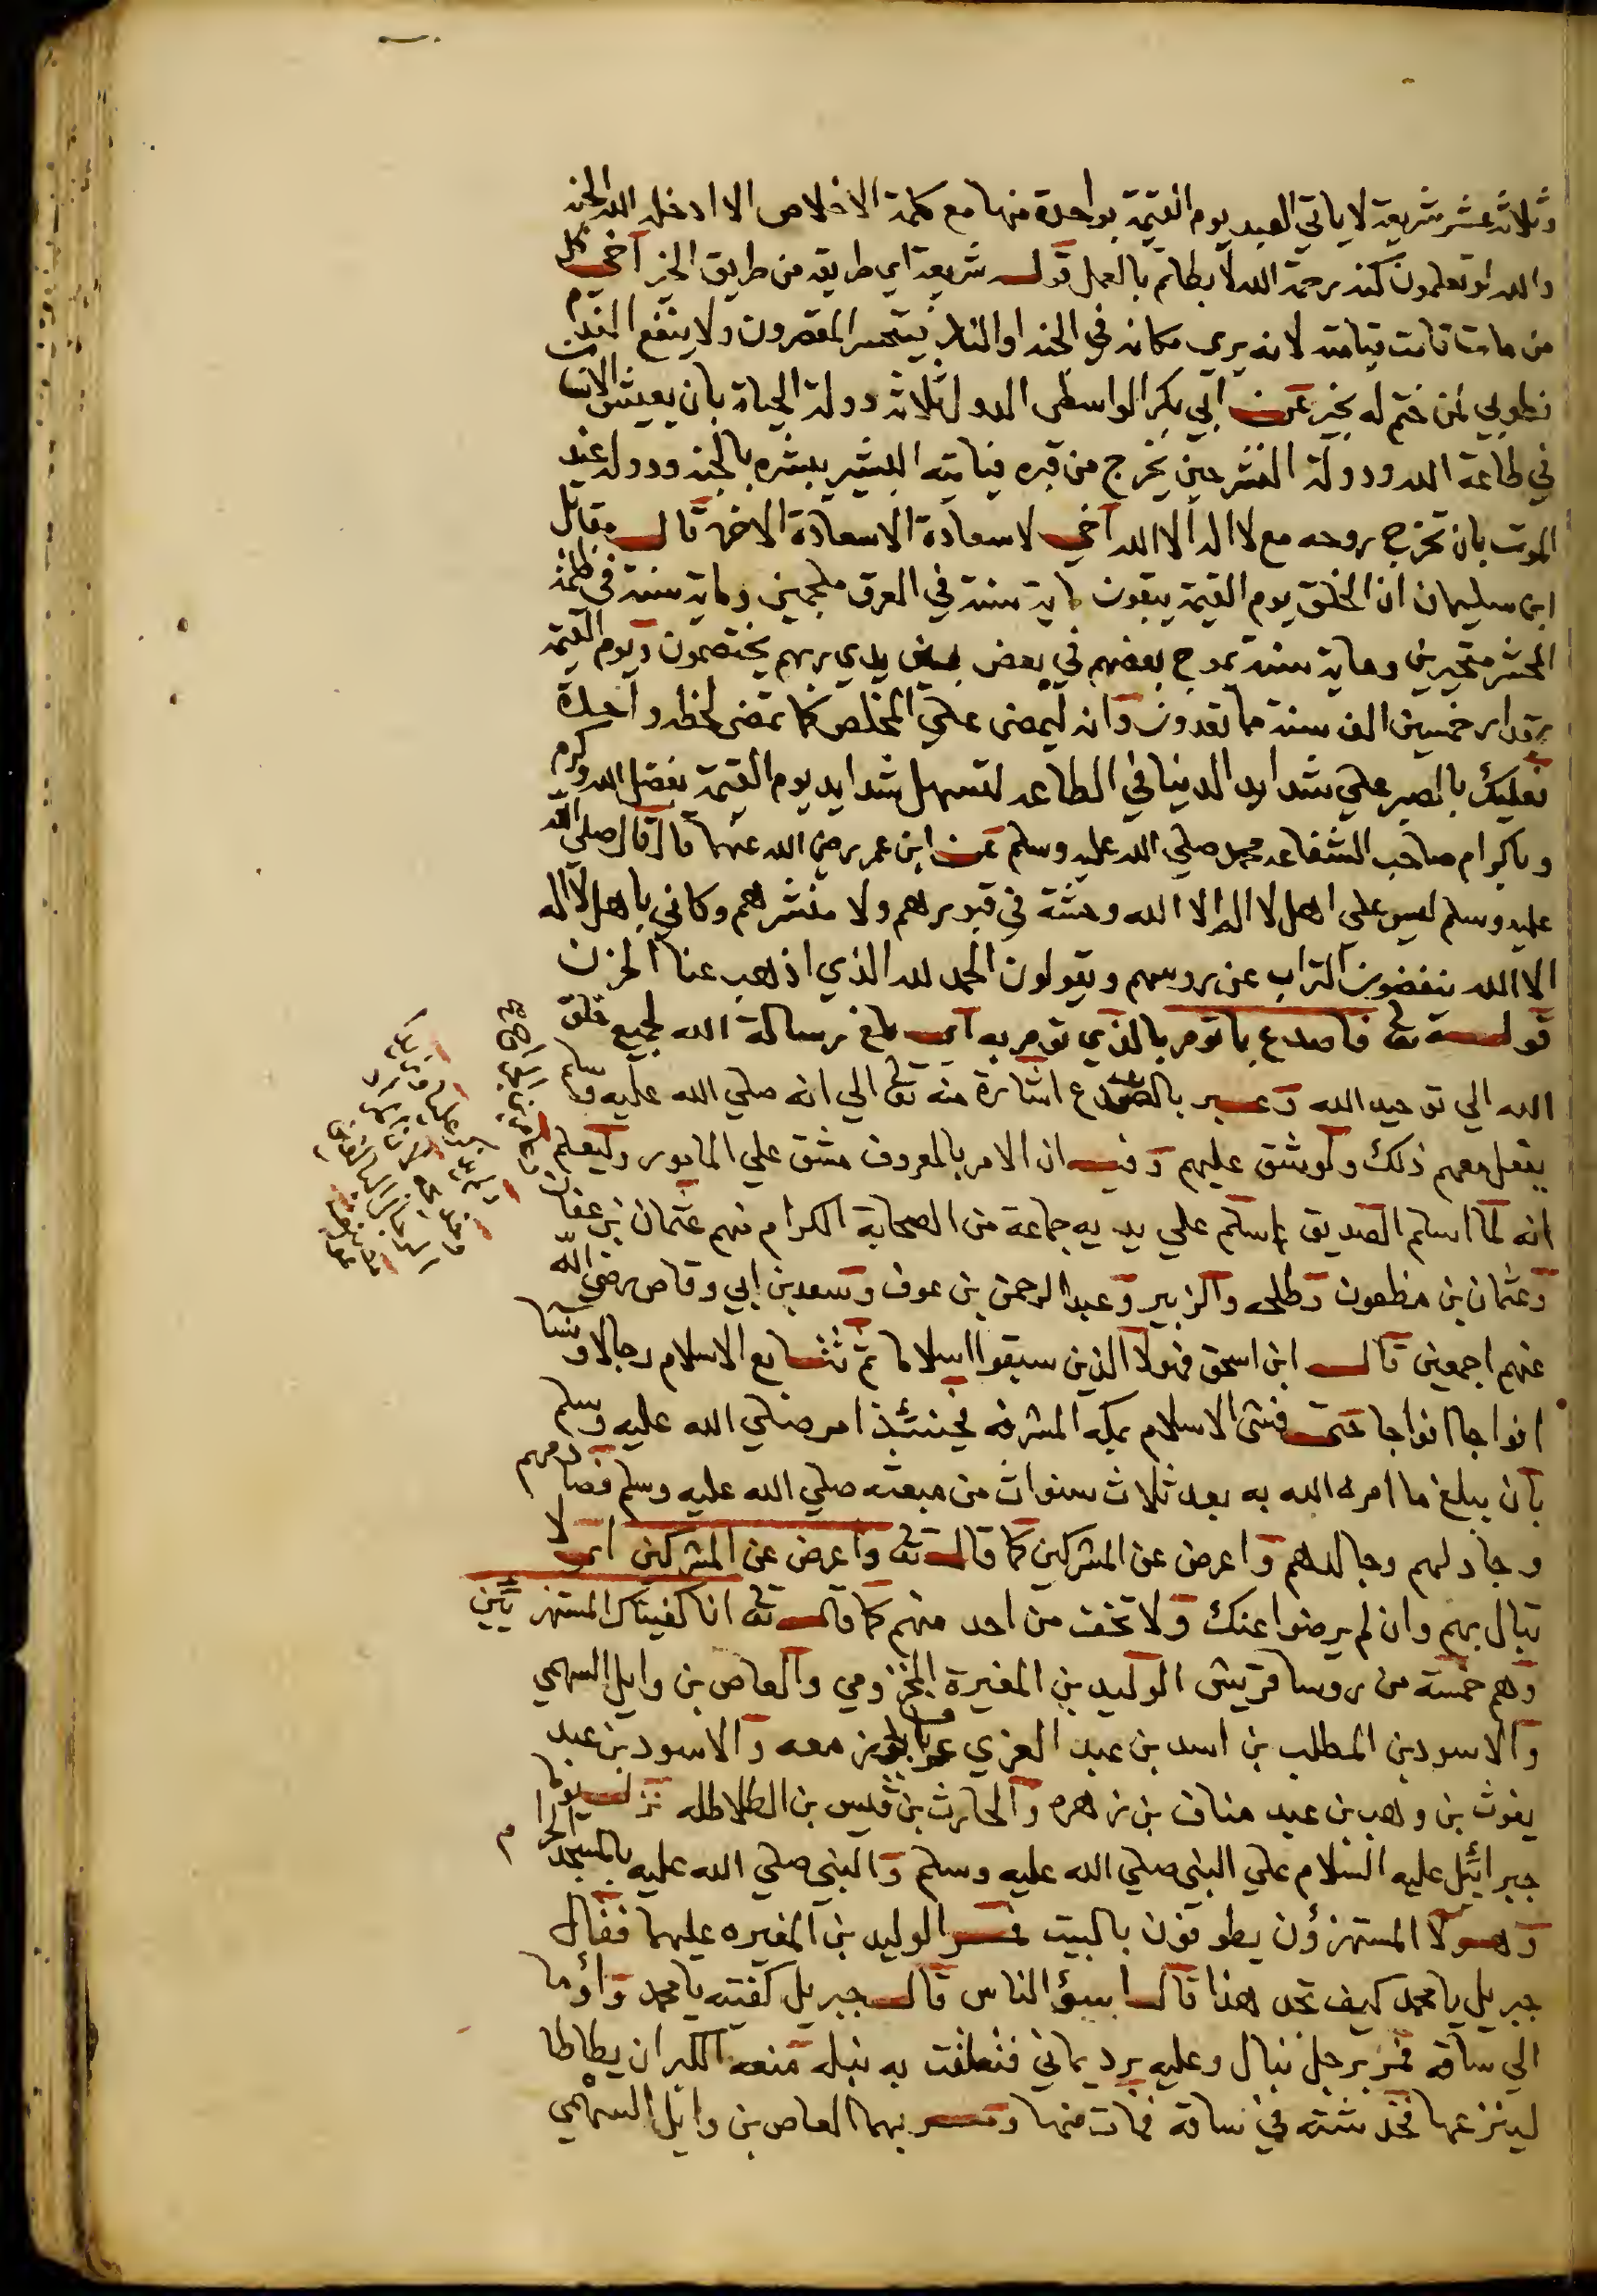 وثلاثه عشر شريعة لا ياتي العبد يوم القيمة بواحدة منها مع كلمة الاخلاص الا ادخله الله الجنه
والله لو تعلمون كنه رحمة الله لا بطاتم بالعمل قوله شريعة اي طريقه من طريق الخير آخي كل
من مات قامت قيامته لانه يري مكانه في الجنه او النار فيتحسر المقصرون ولا ينفع الندم
فطوبي لمن ختم له بخير عن ابي بكر الواسطي الدول ثلاثه دولة الحياة بان يعيش الانسان
في طاعة الله ودولة النشر حين يخرج من قبره فياتيه البشير يبشره بالجنه ودولة عند
الموت بان تخرج روحه مع لا اله الا الله آخي لا سعادة الا سعادة الاخره قال مقاتل
ابن سليمان ان الخلق يوم القيمة يبقون ماية سنة في العرق ملجمين وماية سنة في ظلمة
المحشر متحيرين وماية سنة تموج بعضهم في بعض بين يدي ربهم يختصمون ويوم القيمة
بمقدار خمسين الف سنة مما تعدون وانه ليمضى علي المخلص كما تمضى لحظه واحدة
فعليك بالصبر علي شدايد الدنيا في الطاعه لتسهل شدايد يوم القيمة بفضل الله وكرم
وباكرام صاحب الشفاعه محمد صلي الله عليه وسلم عن ابن عمر رضي الله عنهما قال قال صلي الله
عليه وسلم ليس علي اهل لا اله الا الله وحشة في قبورهم ولا منشرهم وكاني باهل لا اله
الا الله ينفضون التراب عن روسهم ويقولون الحمد لله الذي اذهب عنا الحزن
قوله تعا فاصدع بما تومر بالذي تومر به اي بلغ رسالة الله لجميع خلق
الله الي توحيد الله وعبر بالصدع اشارة منه تعا الي انه صلي الله عليه وسلم
يفعل معهم ذلك ولو شق عليهم وفيه ان الامر بالمعروف مشق علي المامور وليعلم
انه لما اسلم الصديق اسلم علي يديه جماعة من الصحابة الكرام منهم عثمان بن عفان
وعثمان بن مظعون وطلحه والزبير وعبد الرحمن بن عوف وسعد بن ابي وقاص رضي الله
عنهم اجمعين قال ابن اسحق فهولا الذين سبقوا اسلاما ثم تتابع الاسلام رجالا ونسا
افواجا افواجا حتى فشى الاسلام بمكه المشرفه فحينئذ امر صلي الله عليه وسلم
بان يبلغ ما امره الله به بعد ثلاث سنوات من مبعثه صلي الله عليه وسلم فصادمهم
وجادلهم وجالدهم واعرض عن المشركين كما قال تعا واعرض عن المشركين اي لا
تبال بهم وان لم يرضوا عنك ولا تخف من احد منهم كما قال تعا انا كفيناك المستهزئين
وهم خمسة من روسا قريش الوليد بن المغيرة المخزومي والعاص بن وايل السهمي
والاسود بن المطلب بن اسد بن عبد العزي معه والاسود بن عبد
يغوث بن وهب بن عبد مناف بن زهره والحارث بن قيس بن الطلاطله نزل يوما
جبرائيل عليه السلام علي النبي صلي الله عليه وسلم والنبي صلي الله عليه بالمسجد الحرام
وهولا المستهزؤن يطوفون بالبيت فمر الوليد بن المغيره عليهما فقال
جبريل يا محمد كيف تجد هذا قال بيسؤ الناس قال جبريل كفيته يا محمد واؤما
الي ساقه فمر برجل نبال وعليه برد يماني فتعلقت به نبله فمنعه الكبر ان يطاطا
لينزعها فخدشته في ساقه فمات منها ومر بهما العاص بن وايل السهمي